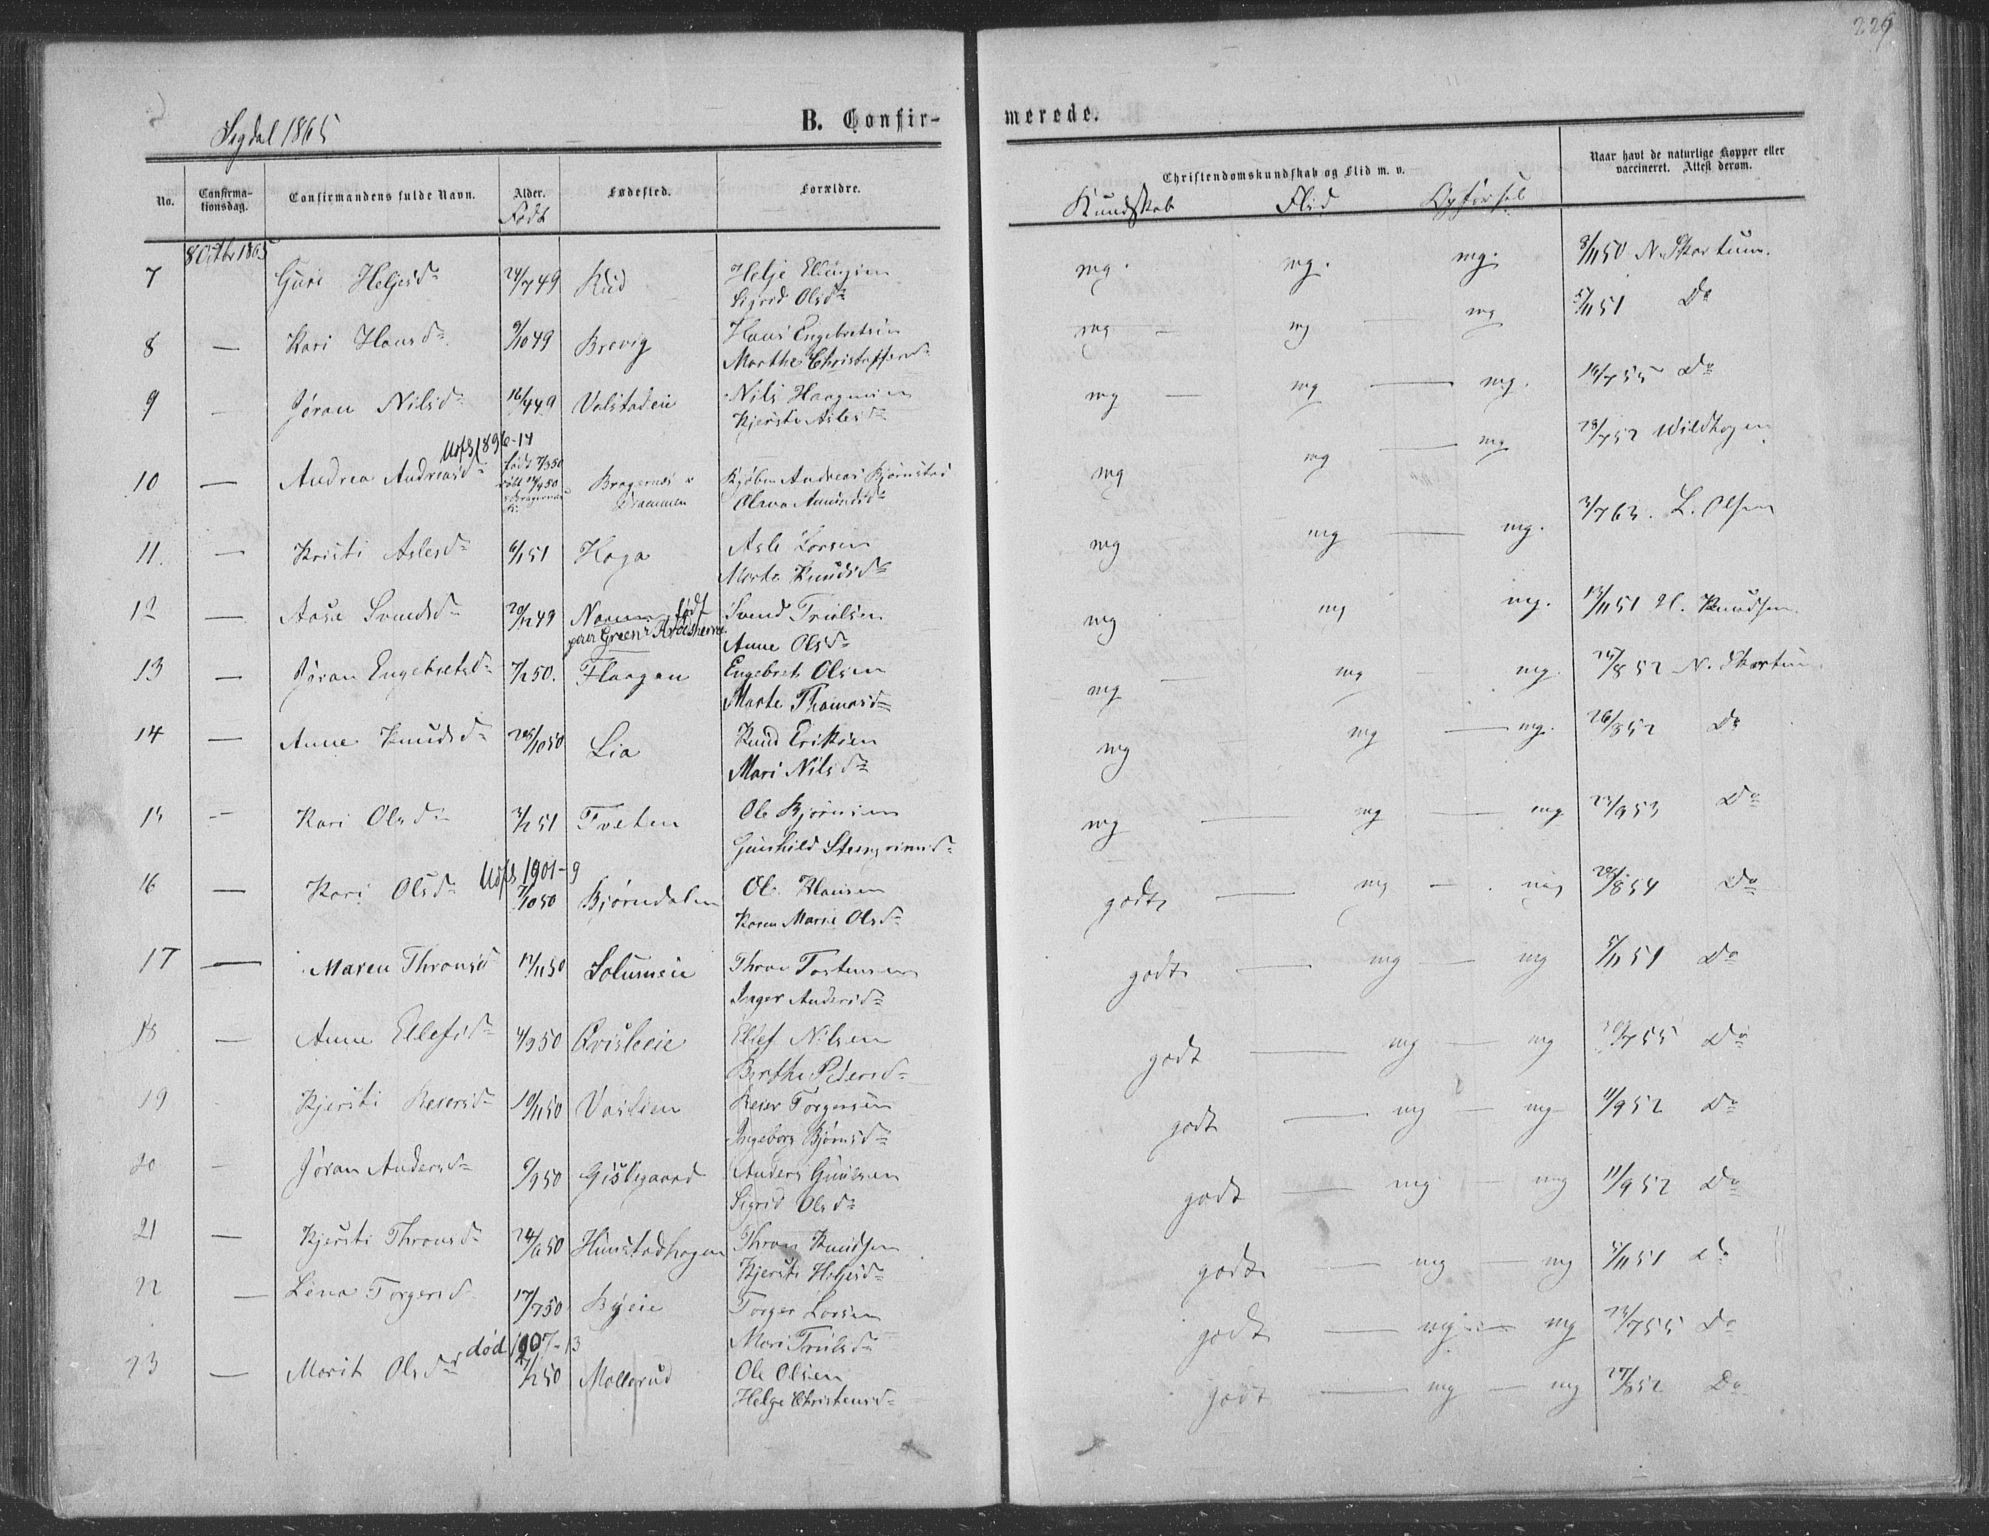 229
Sigdal 1865
B. Confir- merede.
No. Confirma-tionsdag. Confirmandens fulde Navn. Alder. Fødested. Forældre. Christendomskundskab og Flid m. v. Naar havt de naturlige Kopper eller vaccineret. Attest derom.
Født Kundskab Flid Opførsel
8 Octbr 1865
7 Guri Heljesd 24/7 49 Rud Helje Ellingsen mg. mg. mg. 8/11 50 N. Skartum.
Sigrid Olsd
8 — Kari Hansd 9/10 49 Brevig Hans Engebretsen mg — mg — mg 5/11 51 Do
Marthe Christoffersd
9 — Jøran Nilsd 16/4 49 Valstadeie Nils Haagensen mg — mg — mg. 16/7 55 Do
Kjersti Aslesd
Udfs 1896-14
10 — Andrea Andreasd født 7/3 50 Bragernes v Kjøbm Andreas Bjørnstad mg mg — mg 28/7 52 Wildhagen
Drammen Olava Amundsd
11. — Kristi Aslesd 6/1 51 Haga Asle Larsen mg mg — mg. 3/7 63. L. Olsen
Marte Knudsd
12 — Aase Svendsd 20/12 49 Narum, født Svend Trulsen mg mg mg. 13/11 51 H. Knudsen
paa Green Anne Olsd
13 — Jøran Engebretsd 7/12 50. Flaagan Engebret Olsen mg — mg mg. 25/8 52 N. Skartum
Marte Thomasd
14 — Anne Knudsd 28/10 50 Lia Knud Eriksen mg — mg — mg. 26/8 52 Do
Mari Nilsd
15 — Kari Olsd 3/2 51 Tveten Ole Bjørnsen mg — mg — mg 23/9 53 Do
Gunhild Steengrimsd
Udfs 1901-9
16 — Kari Olsd 7/10 50 Bjørndalen Ole Hansen godt — mg — mg 28/8 54 Do
Karen Marie Olsd
17 — Maren Thronsd 17/11 50 Solumeie Thron Torstensen godt — mg — mg 5/11 51 Do
Inger Andersd
18 — Anne Ellefsd 4/9 50 Qvisleeie Ellef Nilsen godt — mg — mg 20/7 55 Do
Berthe Pedersd
19 Kjersti Reiersd 10/11 50 Vaslien Reier Torgersen godt — mg — mg 11/9 52 Do
Ingeborg Bjørnsd
20 — Jøran Andersd 6/9 50 Gislegaard Anders Gulliksen godt — mg — mg 11/9 52 Do
Sigrid Olsd
21 — Kjersti Thronsd 24/12 50 Hunstadhagen Thron Knudsen godt — mg — mg 5/11 51 Do
Kjersti Heljesd
22 — Lena Torgersd 17/7 50 Byeie Torger Larsen godt — mg — mg 23/7 55 Do
Mari Trulsd
død 1907-13
23 — Marit Olsd 7/12 50 Mollerud Ole Olsen godt — mg — mg 27/8 52 Do
Helge Christensd